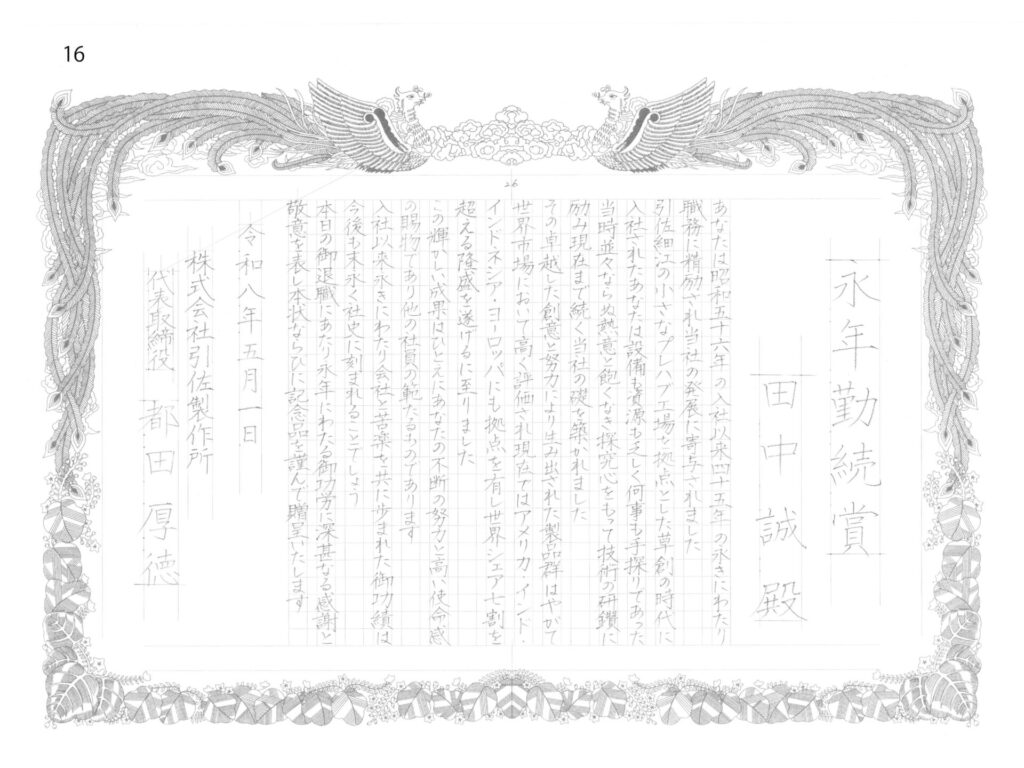 16
26
永年勤続賞
田中誠殿
あなたは昭和五十六年の入社以来四十五年の永きにわたり
職務に精励され当社の発展に寄与されました
引佐細江の小さなプレハブ工場を拠点とした草創の時代に
入社されたあなたは設備も資源も乏しく何事も手探りであった
当時並々ならぬ熱意と飽くなき探究心をもって技術の研鑽に
励み現在まで続く当社の礎を築かれました
その卓越した創意と努力により生み出された製品群はやがて
世界市場において高く評価され現在ではアメリカ・インド・
インドネシア・ヨーロッパにも拠点を有し世界シェア七割を
超える隆盛を遂げるに至りました
この輝かしい成果はひとえにあなたの不断の努力と高い使命感
の賜物であり他の社員の範たるものであります
入社以来永きにわたり会社と苦楽を共に歩まれた御功績は
今後も末永く社史に刻まれることでしょう
本日の御退職にあたり永年にわたる御功労に深甚なる感謝と
敬意を表し本状ならびに記念品を謹んで贈呈いたします
令和八年五月一日
株式会社引佐製作所
代表取締役 都田厚徳